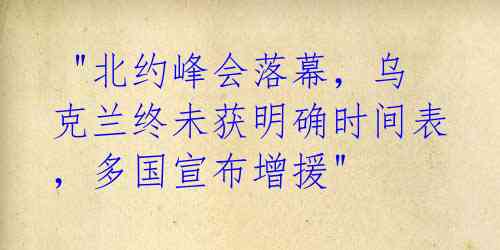 "北约峰会落幕，乌
克兰终未获明确时间表
，多国宣布增援"